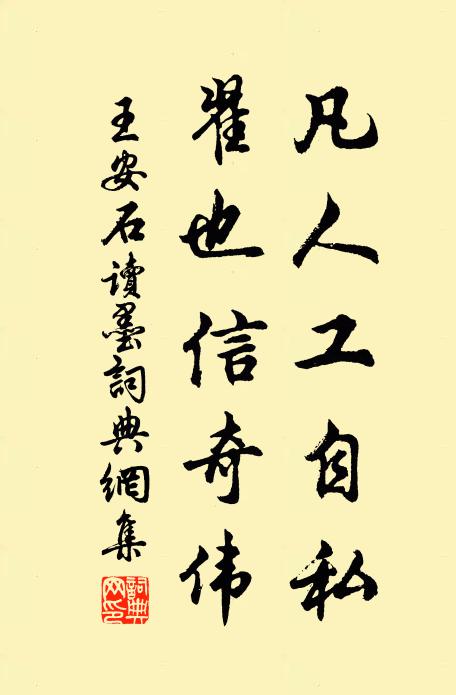 凡人工自私
翟也信奇伟
王安石讀墨詞典網集
詞典網印